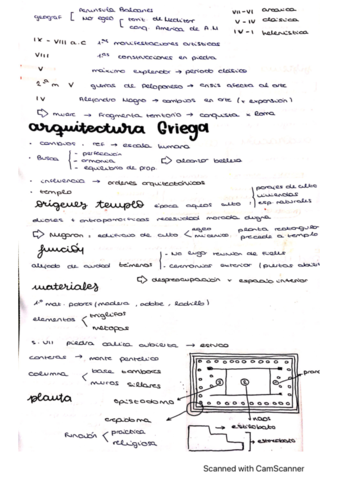 Península Balcanes
geograf.
Mar Egeo
VII-VI arcaica
V-IV clásica
IV-I helenística
IX - VIII a.C 1ªs manifestaciones artísticas
VIII 1ªs construcciones en piedra
V máximo esplendor → periodo clásico
2ª m V guerras del Peloponeso → crisis afecta al arte
IV Alejandro Magno → cambios en arte (x expansión)
muere → fragmenta territorio → conquista → Roma
arquitectura Griega
· cambios, ref → escala humana
· Busca
- perfección
- armonía
- equilibrio de prop.
alcanzar belleza
· influencia → órdenes arquitectónicos
· templo
parajes de culto
esp. naturales
orígenes templo
dioses + antropomórficos necesidad morada digna
Megaron, edificio de culto
planta rectangular
precede a templo
función
- No lugar reunión de fieles
- ceremonias exterior
alejado de ciudad
despreocupación x espacio interior
materiales
1ºs mat. pobres (madera, adobe, ladrillo)
elementos
triglifos
metopas
S. VII piedra caliza → estuco
canteras → monte pentélico
columna
base tambores
muros sillares
planta
opistodomo
naos
crepidoma
función
práctica
religiosa
→ estilobato
estereobato
Scanned with CamScanner